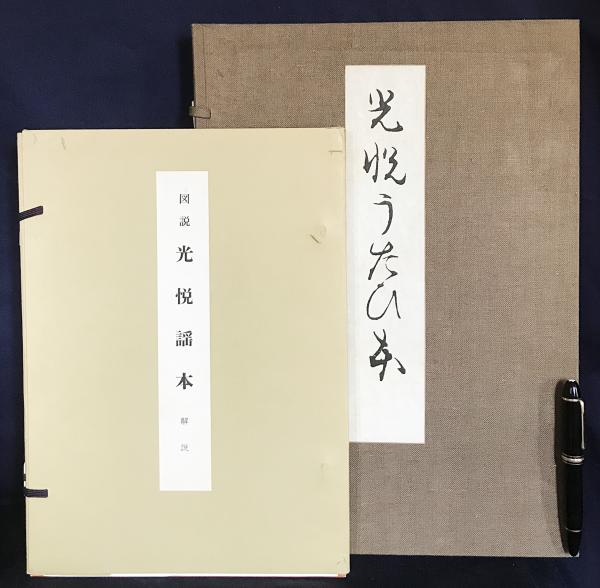 図説 光悦謡本 解説
光悦うたひ本